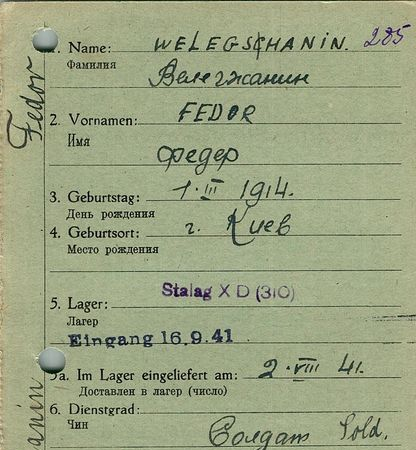 1. Name: WELEGSCHANIN. 285
Фамилия
Велегжанин
2. Vornamen: FEDOR
Имя
Федер
3. Geburtstag: 1. III 1914.
День рождения
4. Geburtsort: г. Киев
Место рождения
5. Lager: Stalag X D (310)
Лагер
Eingang 16.9.41
5a. Im Lager eingeliefert am: 2. VIII 41.
Доставлен в лагер (число)
6. Dienstgrad:
Чин
Солдат Sold.
Fedor
anin